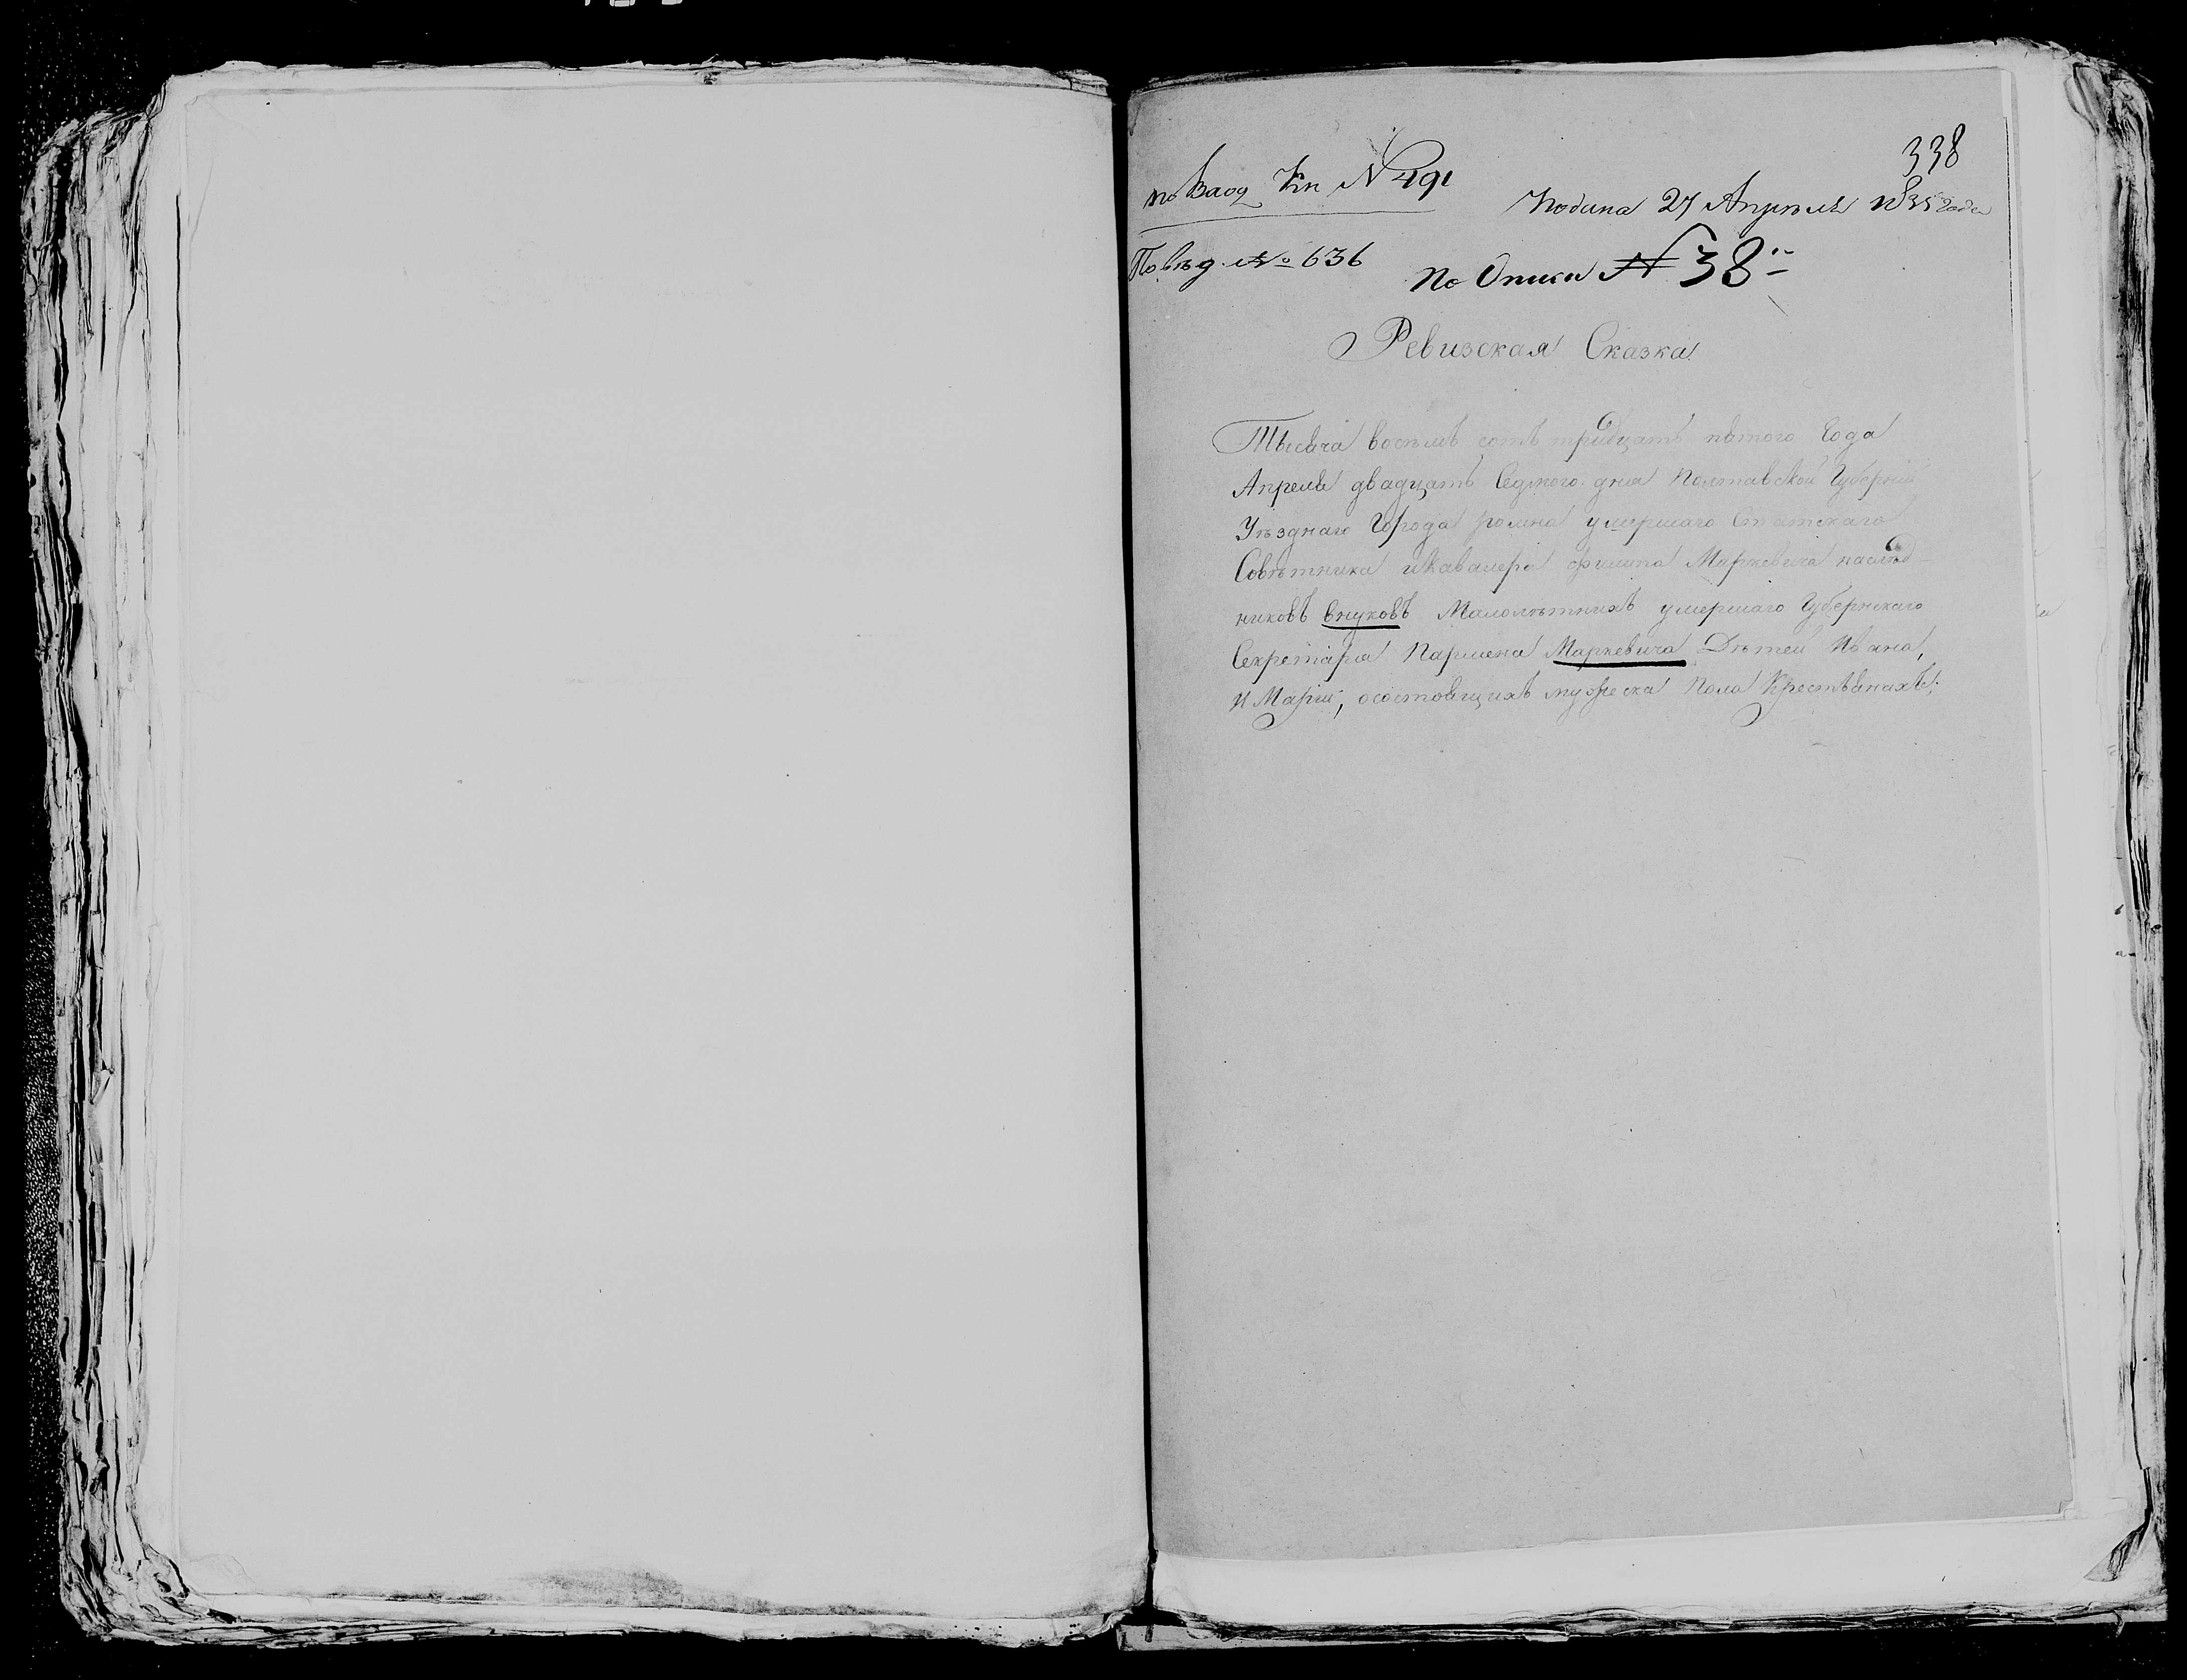 338
по Вход Кн №491
Подана 27 Апрѣля 1835 года
По вѣд. № 636
По Описи № 38
Ревизская Сказка
Тысяча восѣмь сотъ тридцать пятого Года
Апреля двадцать Седмого дня Полтавской Губернии
Уѣзднаго Города ромна умершаго Статскаго
Совѣтника и Кавалера филипа Маркевича наслѣд-
никовъ внуковъ Малолѣтнихъ умершаго Губернскаго
Секретаря Пармена Маркевича Дѣтей Ивана,
и Марии, осостоящихъ мужеска Пола Крестьянахъ;